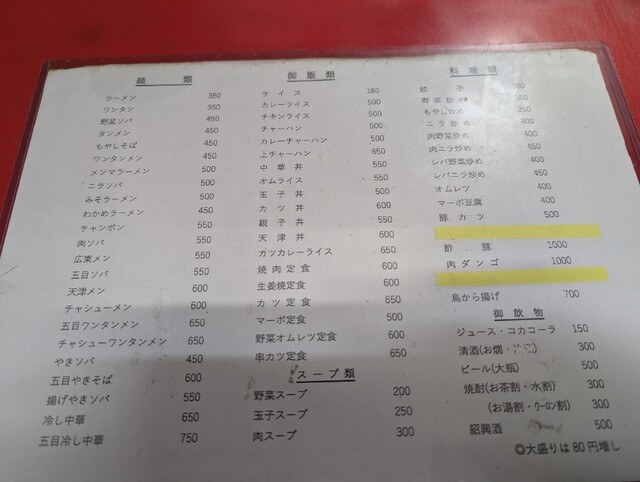 麺　類
ラーメン 350
ワンタン 350
野菜ソバ 450
タンメン 450
もやしそば 450
ワンタンメン 450
メンマラーメン 500
ニラソバ 500
みそラーメン 500
わかめラーメン 450
チャンポン 550
肉ソバ 550
広東メン 550
五目ソバ 550
天津メン 600
チャシューメン 600
五目ワンタンメン 650
チャシューワンタンメン 650
やきソバ 450
五目やきそば 600
揚げやきソバ 550
冷し中華 650
五目冷し中華 750
御飯類
ライス 180
カレーライス 500
チキンライス 500
チャーハン 500
カレーチャーハン 500
上チャーハン 650
中華丼 550
オムライス 550
玉子丼 500
カツ丼 600
親子丼 550
天津丼 600
カツカレーライス 650
焼肉定食 600
生姜焼定食 600
カツ定食 650
マーボ定食 500
野菜オムレツ定食 600
串カツ定食 650
スープ類
野菜スープ 200
玉子スープ 250
肉スープ 300
料理類
餃　子
野菜炒め 350
もやし炒め
ニラ炒め 400
肉野菜炒め 400
肉ニラ炒め 450
レバ野菜炒め 400
レバニラ炒め 450
オムレツ 400
マーボ豆腐 400
豚カツ 500
酢　豚 1000
肉ダンゴ 1000
鳥から揚げ 700
御飲物
ジュース・コカコーラ 150
清酒(お燗・ 300
ビール(大瓶) 500
焼酎(お茶割・水割) 300
(お湯割・ウーロン割) 300
紹興酒 500
◎大盛りは80円増し